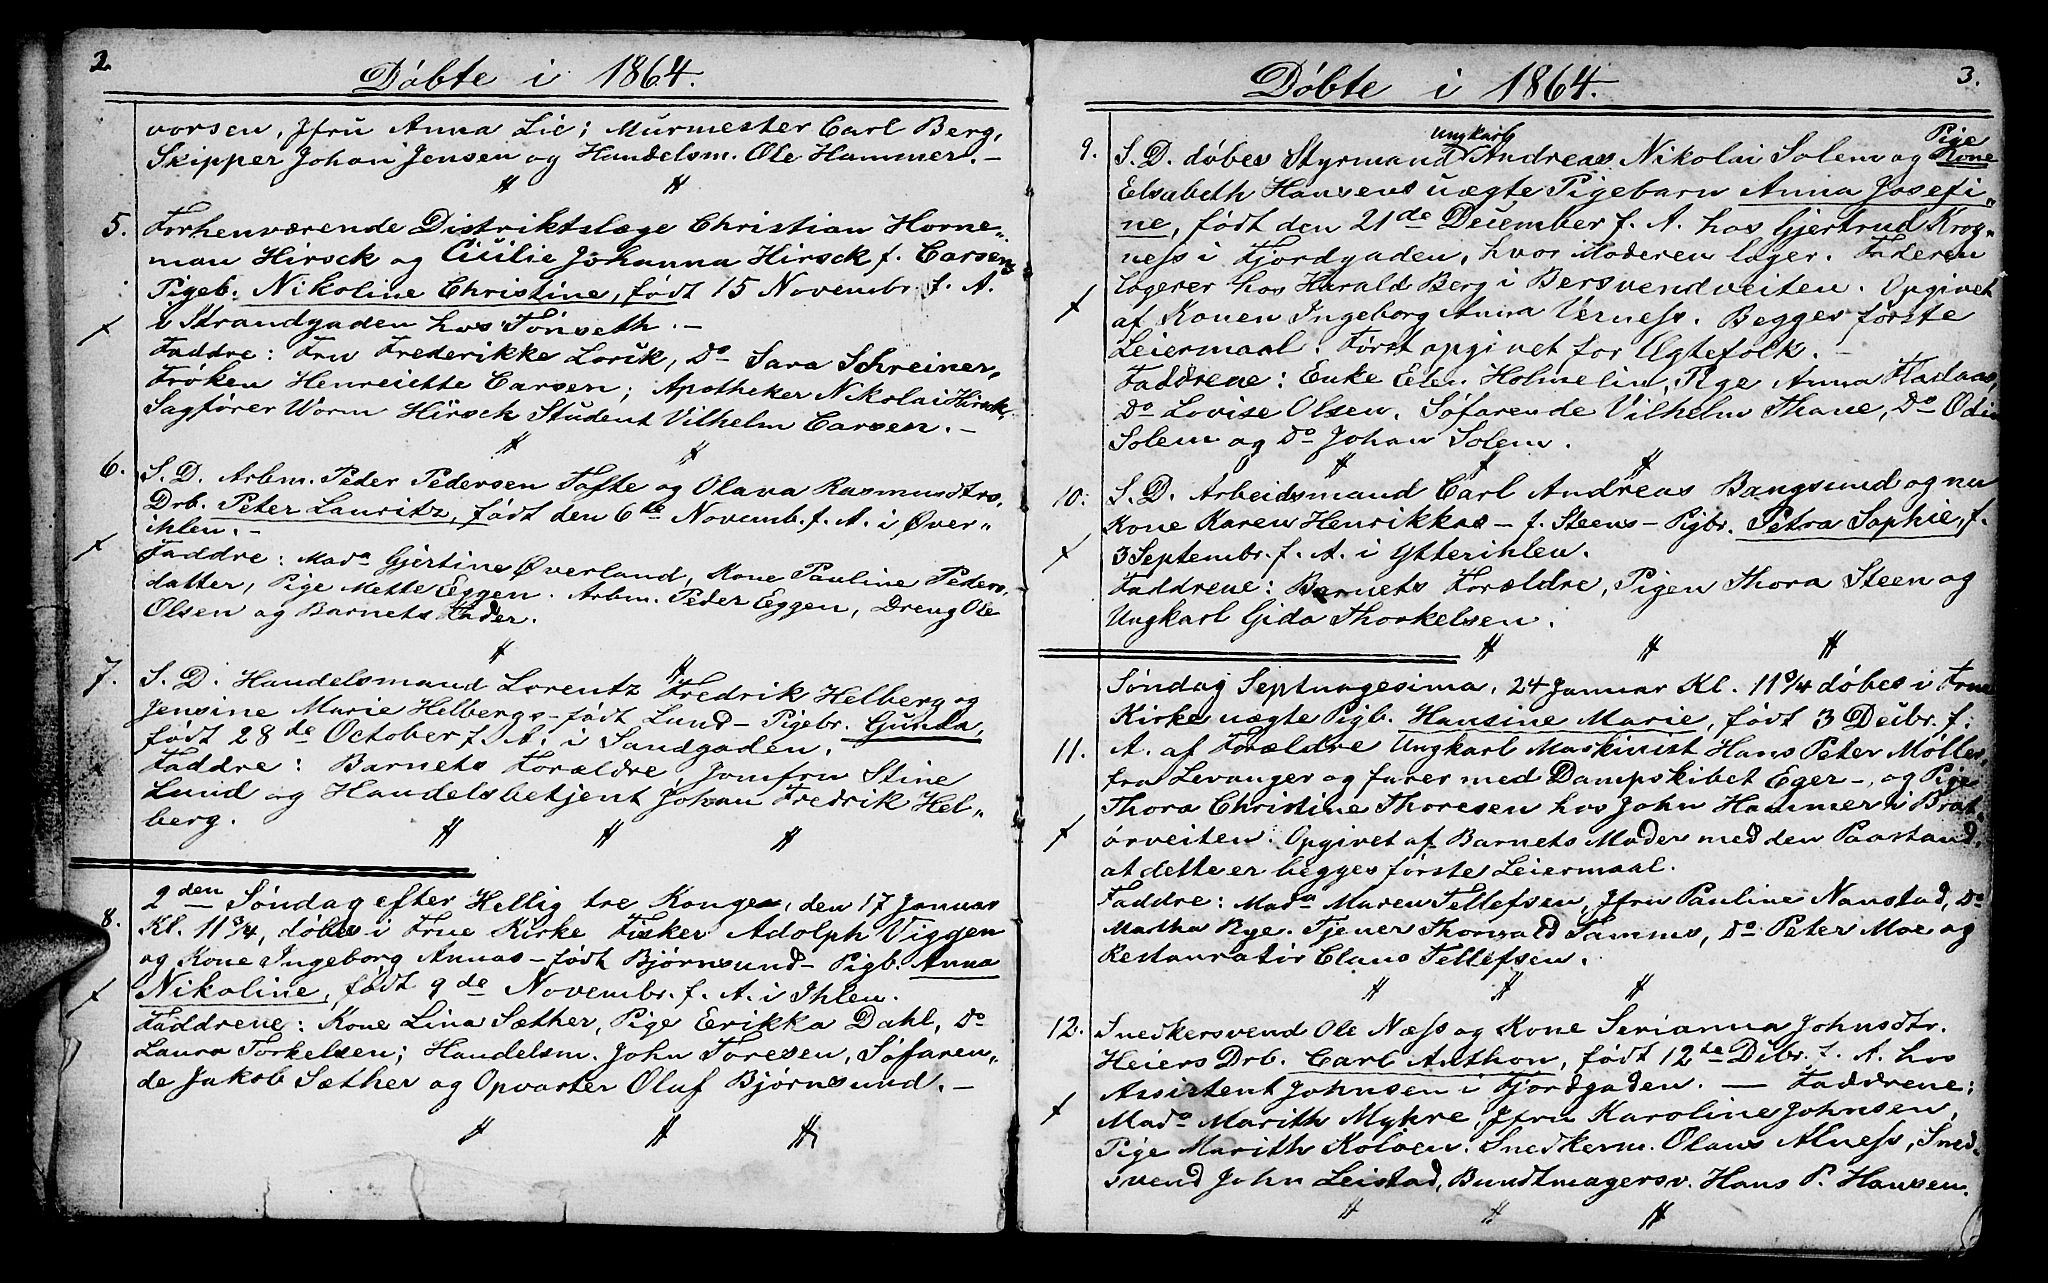 2.
Döbte i 1864.
vorsen, Jfru Anna Lie; Murmester Carl Berg,
Skipper Johan Jensen og Handelsm. Ole Hammer. –
5. Forhenværende Distriktslæge Christian Horne„
man Hirsch og Cicilie Johanna Hirsch f. Carsens
Pigeb. Nikoline Christine, født 15 Novembr. f. A.
i Strandgaden hos Tönseth. –
Faddre: Fru Frederikke Lorck, Do Sara Schreiner,
Fröken Henreiette Carsen; Apotheker Nikolai Hirsch,
Sagförer Worm Hirsch Student Vilhelm Carsen. –
6. S. D. Arbm. Peder Pedersen Tofte og Olava Rasmusdtrs.
Drb. Peter Lauritz, født den 6te Novemb. f. A. i Øver„
ihlen. –
Faddre: Mada Gjertine Øverland, Kone Pauline Peders„
datter, Pige Mette Eggen. Arbm. Peder Eggen, Dreng Ole
Olsen og Barnets Fader.
7. S. D. Handelsmand Lorentz Fredrik Helberg og
Jensine Marie Helbergs – født Lund – Pigebr. Gunda,
født 28de October f. A. i Sandgaden.
Faddre: Barnets Forældre, Jomfru Stine
Lund og Handelsbetjent Johan Fredrik Hel„
berg.
2den Söndag efter Hellig tre Konger, den 17 Januar
8. Kl. 11 3/4, döbes i Frue Kirke Fisker Adolph Viggen
og Kone Ingeborg Annas – født Björnsund – Pigb. Anna
Nikoline, født 9de Novembr. f. A. i Ihlen.
Faddrene: Kone Lina Sæther, Pige Erikka Dahl, Do
Laura Torkelsen; Handelsm. John Toresen, Söfaren„
de Jakob Sæther og Opvarter Oluf Björnsund. –
3.
Döbte i 1864.
9. S. D. döbes Styrmand Ungkarl Andreas Nikolai Solem og Pige Kone
Elsabeth Hansens uægte Pigebarn Anna Josefi„
ne, født den 21de December f. A. hos Gjertrud Krog„
ness i Fjordgaden, hvor Moderen loger. Faderen
logerer hos Harald Berg i Bersvendveiten. Opgivet
af Konen Ingeborg Anna Verness. Begges förste
Leiermaal. Först opgivet for Ægtefolk. –
Faddrene: Enke Elen Holmelin, Pige Anna Fladaas,
Do Lovise Olsen. Söfarende Vilhelm Thane, Do
Solem og Do Johan Solem.
10. S. D. Arbeidsmand Carl Andreas Bangsund og
Kone Karen Henrikkas – f. Steens – Pigbr. Petra Sophie, f.
3 Septembr. f. A. i Ytterihlen.
Faddrene: Barnets Forældre, Pigen Thora Steen og
Ungkarl Gida Thorkelsen.
Söndag Septuagesima, 24 Januar Kl. 11 3/4 döbes i Frue
Kirke uægte Pigb. Hansine Marie, født 3 Dcibr. f.
11. A. af Forældre Ungkarl Maskinist Hans Peter Möller
fra Levanger og farer med Dampskibet Eger –, og Pige
Thora Christine Thoresen hos John Hammer i Brat„
örveiten. Opgivet af Barnets Moder med den Paastand,
at dette er begges förste Leiermaal.
Faddre: Mada Maren Tellefsen, Jfru Pauline Nanstad, Do
Martha Rye. Tjener Thorvald Samms, Do Peter Moe og
Restauratör Claus Tellefsen.
12. Snedkersvend Ole Næss og Kone Serianna Johnsdtr.
Heiers Drb. Carl Anthon, født 12te Dcbr. f. A. hos
Assistent Johnsen i Fjordgaden. — Faddrene:
Mada Marith Mykre, Jfru Karoline Johnsen,
Pige Marith Kolven. Snedkerm. Olaus Alness, Sned„
svend John Leistad, Bundtmagersv. Hans P. Hansen.